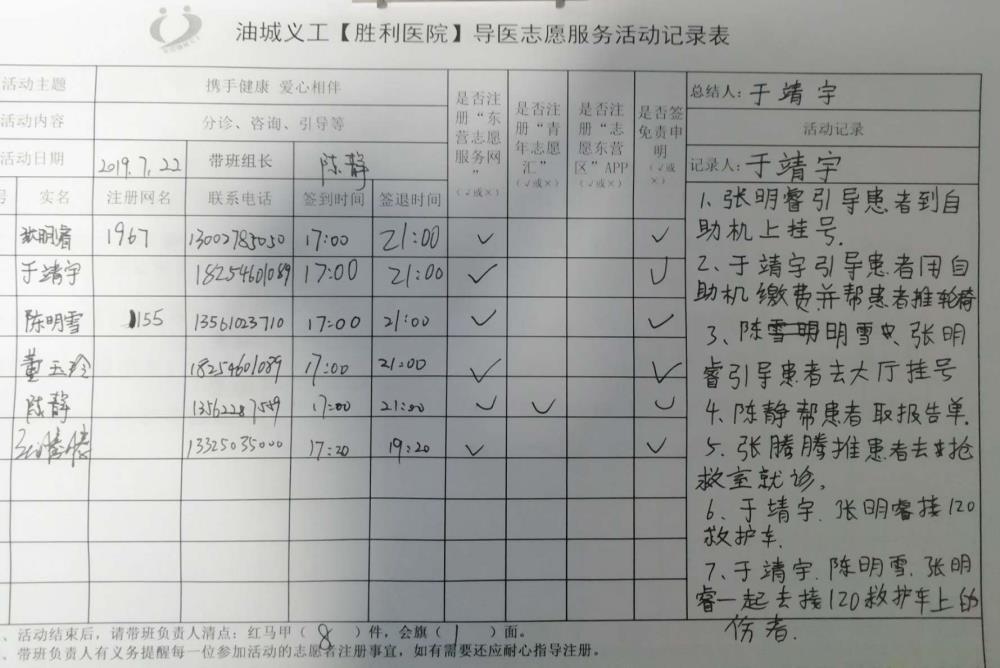 油城义工【胜利医院】导医志愿服务活动记录表
活动主题 携手健康 爱心相伴
活动内容 分诊、咨询、引导等
活动日期 2019.7.22 带班组长 陈静
号 实名 注册网名 联系电话 签到时间 签退时间
是否注册“东营志愿服务网”(√或×)
是否注册“青年志愿汇”(√或×)
是否注册“志愿东营区”APP(√或×)
是否签免责申明(√或×)
张明睿 1967 13002785050 17:00 21:00 ✓ ✓
于靖宇 18254601089 17:00 21:00 ✓ ✓
陈明雪 155 13561023710 17:00 21:00 ✓ ✓
董玉玲 18254601089 17:00 21:00 ✓ ✓
陈静 13562287589 17:00 21:00 ✓ ✓ ✓
张腾腾 13325035000 17:20 19:20 ✓ ✓
总结人：于靖宇
活动记录
记录人：于靖宇
1、张明睿引导患者到自
助机上挂号.
2、于靖宇引导患者用自
助机缴费并帮患者推轮椅
3、陈雪明明雪 张明
睿引导患者去大厅挂号
4、陈静帮患者取报告单.
5、张腾腾推患者去抢
救室就诊。
6、于靖宇.张明睿接120
救护车.
7、于靖宇.陈明雪.张明
睿一起去接120救护车上的
伤者.
、活动结束后，请带班负责人清点：红马甲（ 8 ）件，会旗（ 1 ）面。
、带班负责人有义务提醒每一位参加活动的志愿者注册事宜，如有需要还应耐心指导注册。